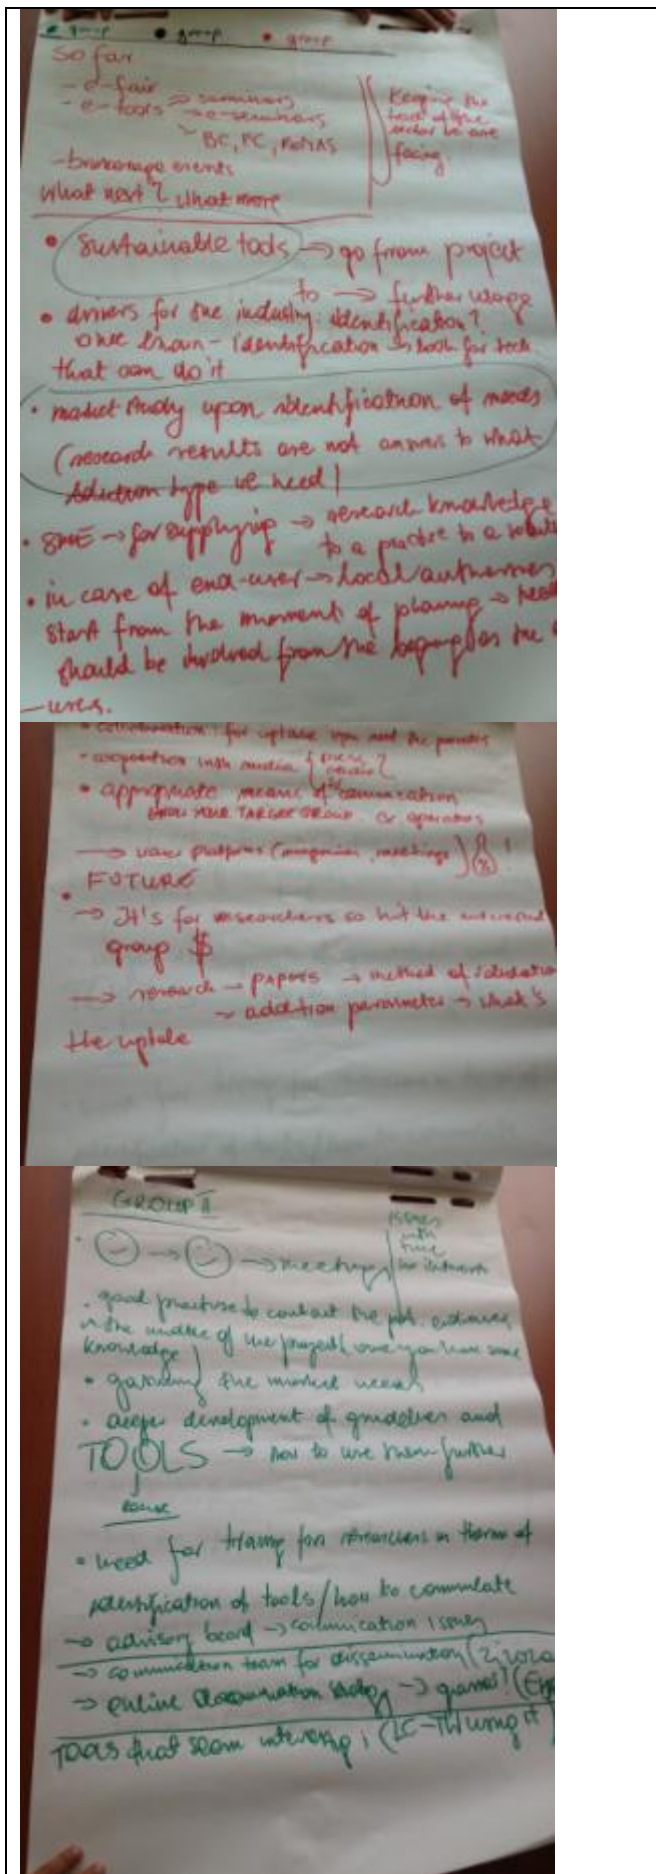 group group group
So far
- e-fair
- e-tools → seminars
→ e-seminars
BC, PC,
- brokerage events
what next? what more
Keeping the
track of the
sector we are
facing.
• Sustainable tools → go from project
to → further usage
• drivers for the industry: identification?
once known - identification → look for tech
that can do it
• market study upon identification of needs
(research results are not answer to what
solution type we need!
• SME → for supplying → research knowledge
to a practise to a
• in case of end-user → local authorities
start from the moment of planing →
should be involved from the beging as the
- users.
• cooperation with media
• appropriate means of comunication
KNOW YOUR TARGET GROUP or operators
→ platforms (magazines, meetings) !
• FUTURE
→ It's for researchers so hit the
group $
→ research → PAPERS → method of validation
→ addition parameter → what's
the uptake
GROUP II
• → → meetups
issues
with
time
• good practise to contact the pot. endusers
in the middle of the project (once you have some
knowledge)
• the market needs
• deeper development of guidelines and
TOOLS → how to use them further
• need for traing for researchers in therms of
identification of tools / how to comunicate
→ advisory board → comunication issues
→ comunication team for dissemination
→ online → games!
TOOLS that seem interesing: (LC-TW using it)